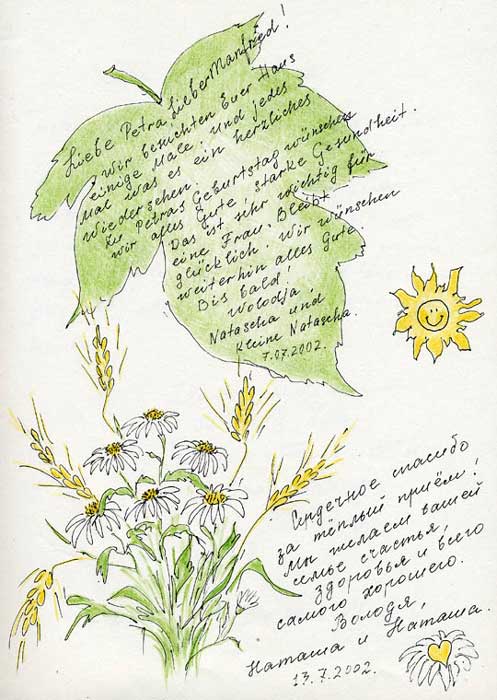 Liebe Petra, Lieber Manfried!
Wir besuchten Euer Haus
einige Male und jedes
Mal was es ein herzliches
Wiedersehen.
Zu Petras Geburtstag wünschen
wir alles Gute, starke Gesundheit.
Das ist sehr wichtig für
eine Frau. Bleibt
glücklich. Wir wünschen
weiterhin alles Gute.
Bis bald!
Wolodja,
Natascha und
kleine Natascha.
7.07.2002.
Сердечное спасибо
за тёплый приём!
Мы желаем вашей
семье счастья,
здоровья и всего
самого хорошего.
Володя,
Наташа и Наташа.
13.7.2002.